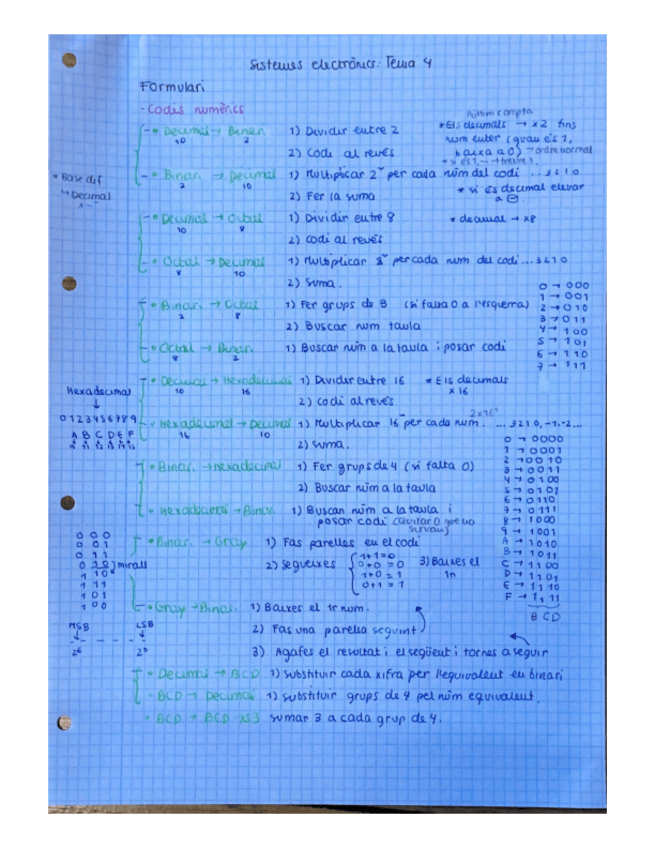 Sistemes electrònics: Tema 4
Formulari
- Codis numèrics
- • Decimal → Binari 1) Dividir entre 2
10 2
2) Codi al revés
* Els decimals → x2 fins
num enter (quan és 1,
baixa a 0) → ordre normal
- • Binari → Decimal 1) Multiplicar 2ⁿ per cada núm del codi ...3210
2 10
2) Fer la suma
* si és decimal elevar
a ⊖
* Base dif
↳ Decimal
- • Decimal → Octal 1) Dividir entre 8 * decimal → x8
10 8
2) codi al revés
- • Octal → Decimal 1) Multiplicar 8ⁿ per cada num del codi ...3210
8 10
2) Suma.
- • Binari → Octal 1) Fer grups de 3 (si falta 0 a l'esquerra)
2 8
2) Buscar num taula
- • Octal → Binari 1) Buscar núm a la taula i posar codi
8 2
0 → 000
1 → 001
2 → 010
3 → 011
4 → 100
5 → 101
6 → 110
7 → 111
- • Decimal → Hexadecimal 1) Dividir entre 16 * Els decimals
10 16 x 16
2) codi al revés
Hexadecimal
↓
0123456789
A B C D E F
- • Hexadecimal → Decimal 1) Multiplicar 16ⁿ per cada num. ...3210,-1,-2...
16 10
2) suma.
- • Binari → hexadecimal 1) Fer grups de 4 (si falta 0)
2) Buscar núm a la taula
- • Hexadecimal → Binari 1) Buscar núm a la taula i
posar codi
0 → 0000
1 → 0001
2 → 0010
3 → 0011
4 → 0100
5 → 0101
6 → 0110
7 → 0111
8 → 1000
9 → 1001
A → 1010
B → 1011
C → 1100
D → 1101
E → 1110
F → 1111
BCD
• Binari → Gray 1) Fas parelles en el codi
2) segueixes
1+1=0
0+0=0
1+0=1
0+1=1
3) Baixes el
1r
0 0 0
0 0 1
0 1 1
0 1 0 ) mirall
1 1 0
1 1 1
1 0 1
1 0 0
- • Gray → Binari 1) Baixes el 1r num.
2) Fas una parella seguint
3) Agafes el resultat i el següent i tornes a seguir
MSB LSB
↓ ↓
- • Decimal → BCD 1) Substituir cada xifra per l'equivalent en binari
- BCD → Decimal 1) Substituir grups de 4 pel núm equivalent.
- • BCD → BCD XS3 sumar 3 a cada grup de 4.